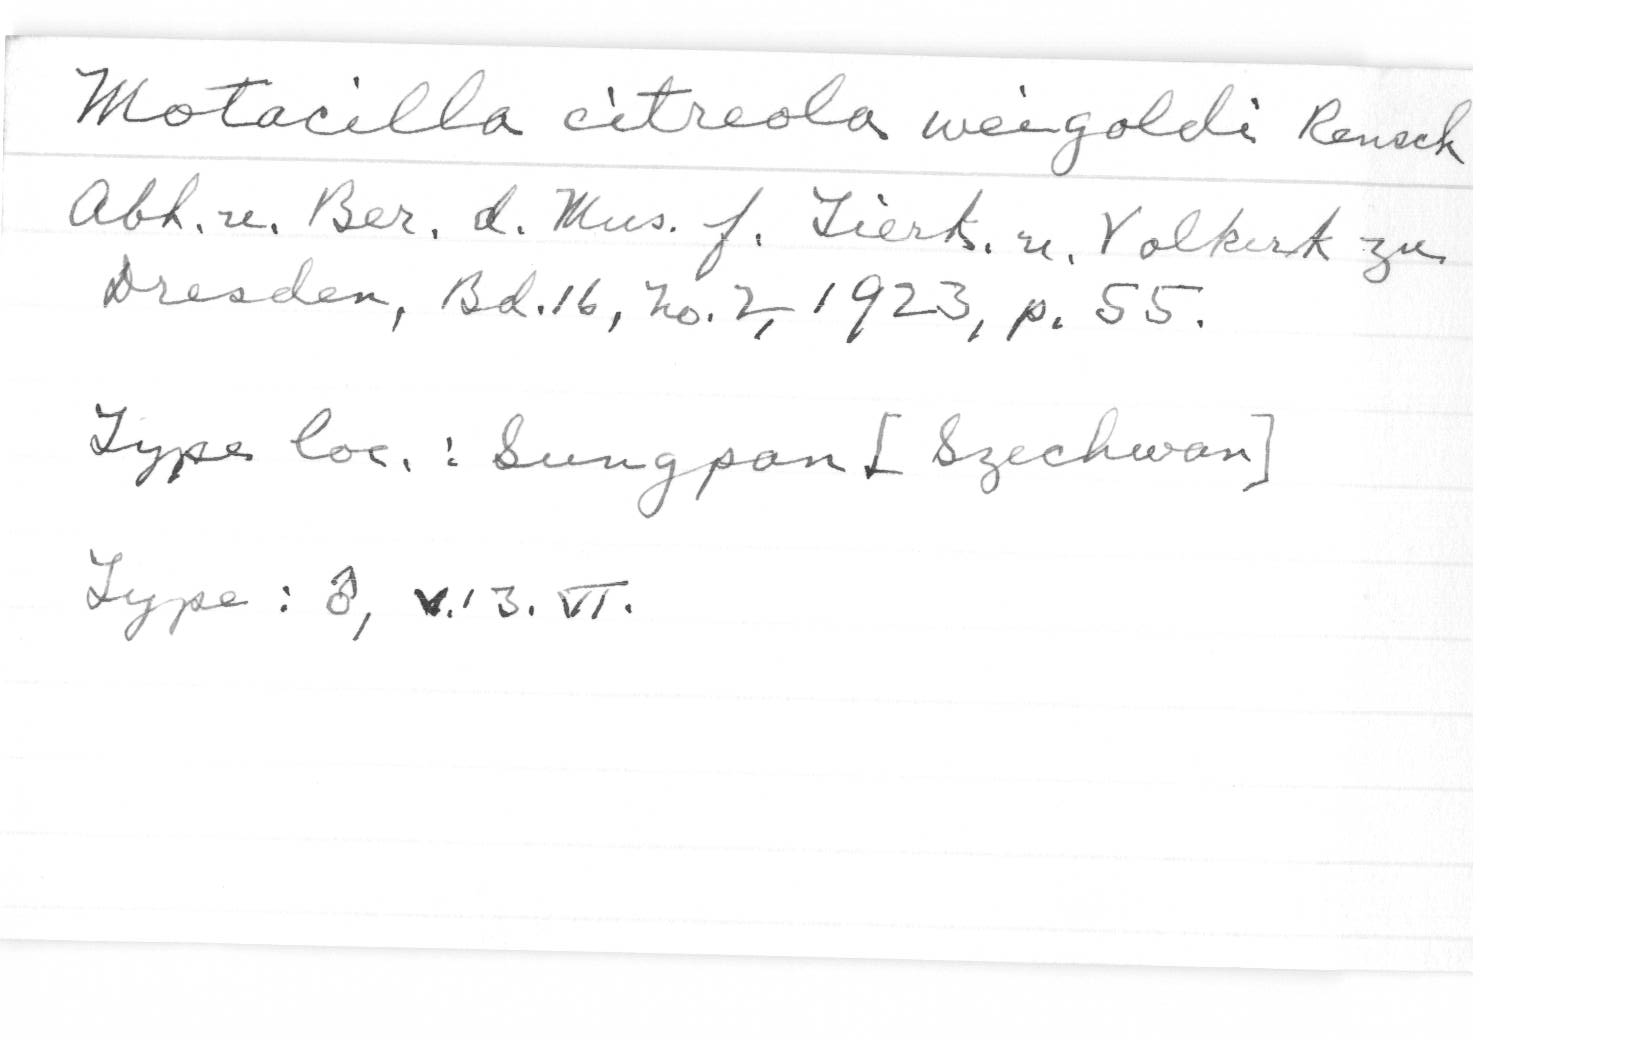 Motacilla citreola weigoldi Rensch
Abh. u. Ber. d. Mus. f. Tierk. u. Volkerk zu
Dresden, Bd. 16, No. 2, 1923, p. 55.
Type loc. : Sungpan [Szechwan]
Type : ♂, v. 13. VI.